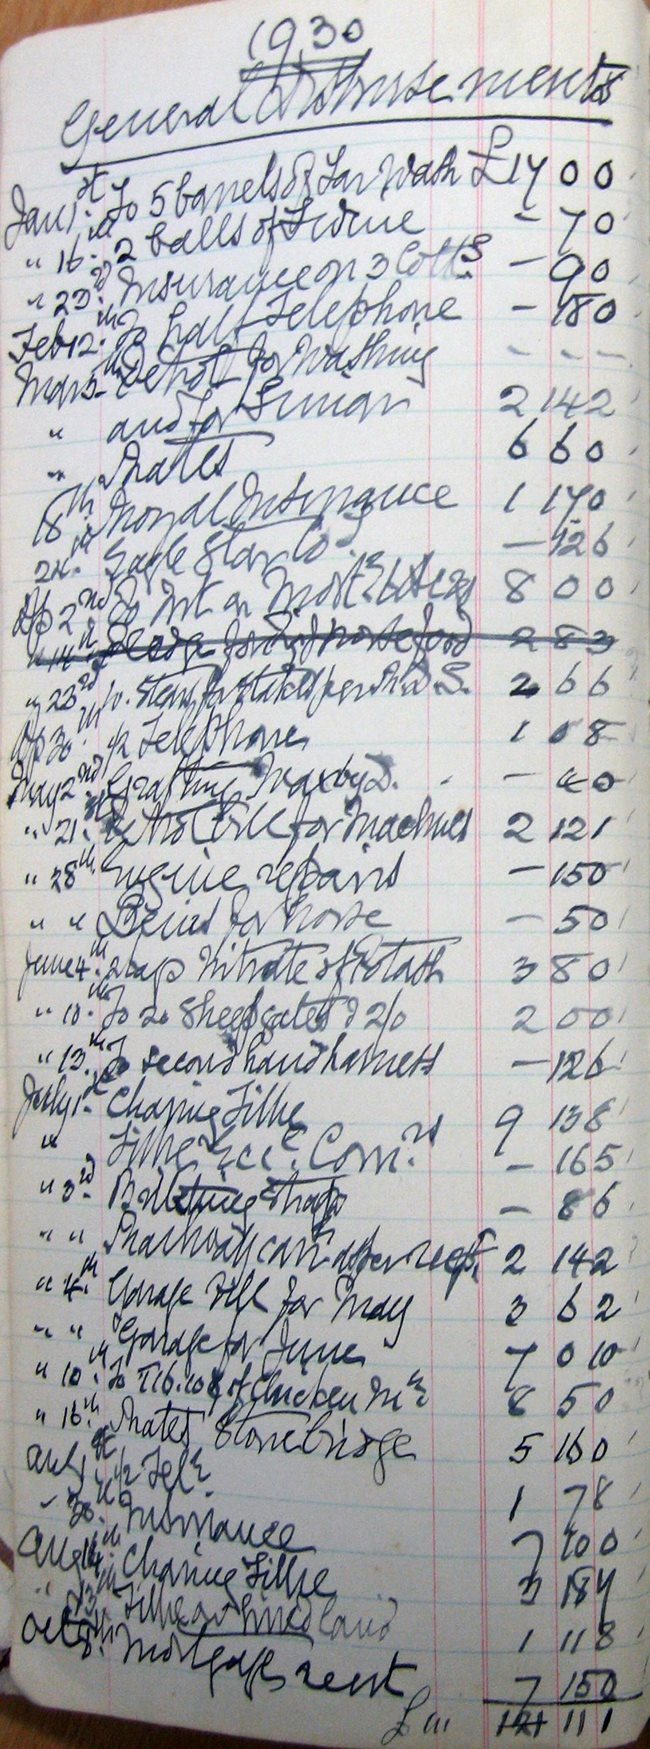 1930
General Disbursements
Jan 1st. To 5 barrels of Tar Wash £17 0 0
" 16th. 2 balls of Twine - 7 0
" 23rd. Insurance on 3 Colts - 9 0
Feb 12th. To half Telephone - 18 0
Mar 5th Petrol for Washing - - -
" and for 2 14 2
" Rates 6 6 0
18th. Royal Insurance 1 17 0
24th. Eagle Star Co - 12 6
Ap 2nd To Int on Mort 8 0 0
" 14th for horse food 2 8 3
" 23rd for Stakes per 2 6 6
Ap 30th. 1/2 Telephone 1 0 8
May 2nd. Grafting Wax by D. - 4 0
" 21st. Petrol Bill for Machines 2 12 1
" 28th. Engine repairs - 15 0
" " for horse - 5 0
June 4th. 2 bags Nitrate of Potash 3 8 0
" 10th. To 20 Sheep gates @ 2/0 2 0 0
" 13th. To second hand harness - 12 6
July 1st. Charing Tithe 9 13 8
" Tithe Ecc. Com.rs - 16 5
" 3rd. straps - 8 6
" " Railway 2 14 2
" 4th. Garage Bill for May 3 6 2
" " Garage for June 7 0 10
" 10th. To of Chicken 8 5 0
" 16th. Rates Stonebridge 5 16 0
1/2 Tele 1 7 8
" 30th. Insurance 7 10 0
Aug 14th. Charing Tithe 3 18 4
" 13th. Tithe on 1 11 8
Oct 8th. Mortgage rent 7 15 0
£111 121 11 1